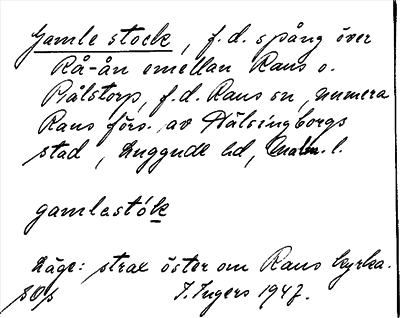 Gamle stock, f.d. spång över
Rå-ån emellan Raus o.
Pålstorp, f.d. Raus sn, numera
Raus förs. av Hälsingborgs
stad, Luggude hd, Malm. l.
gamlastók
Läge: strax öster om Raus kyrka.
I. Ingers 1947.